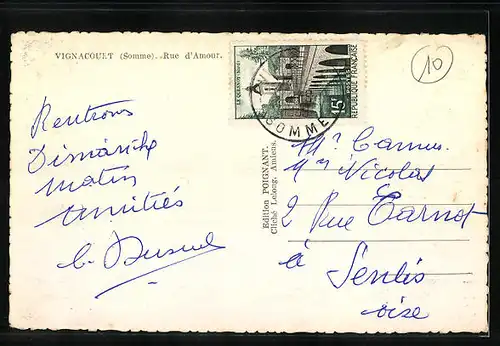 VIGNACOURT (Somme). .Rue d'Amour.
LE QUESNOY (NORD)
15F
REPUBLIQUE FRANÇAISE
SOMME
10
Rentrons
Dimanche
matin
Amitiés
Edition POIGNANT.
Cliché Lelong. Amiens.
Mr Camus
Nicolas
2 Rue Carnot
à Senlis
oise